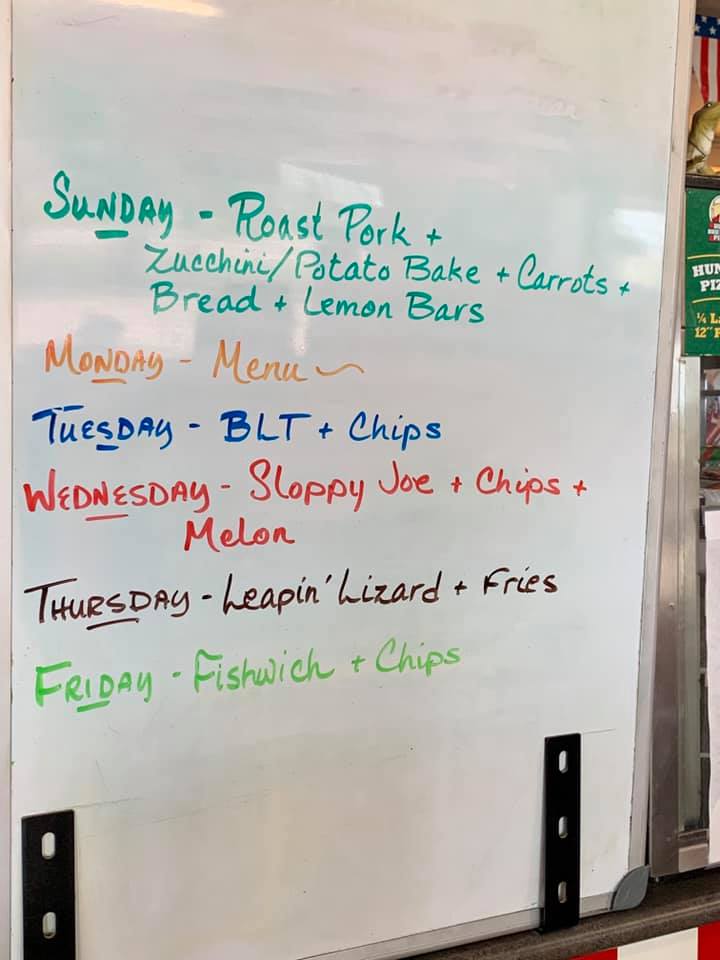 Sunday - Roast Pork +
Zucchini/Potato Bake + Carrots +
Bread + Lemon Bars
Monday - Menu ~
Tuesday - BLT + Chips
Wednesday - Sloppy Joe + Chips +
Melon
Thursday - Leapin' Lizard + Fries
Friday - Fishwich + Chips
HUN
PIZ
¼ L
12"